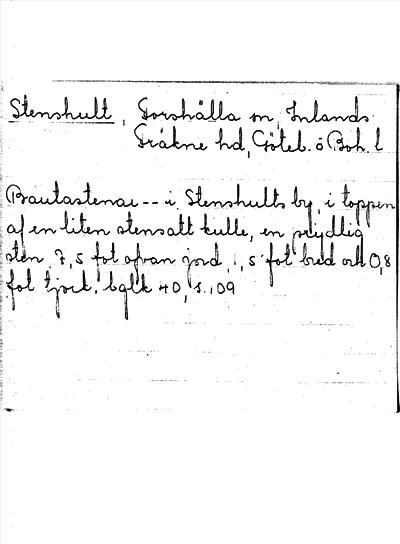 Stenshult, Forshälla sn, Inlands
Fräkne hd, Göteb. ö Boh. l
Bautastenar -- i Stenshults by, i toppen
af en liten stensatt kulle, en prydlig
sten 7,5 fot ofvan jord, 1,5 fot bred och 0,8
fot tjock. bglk 40, s. 109